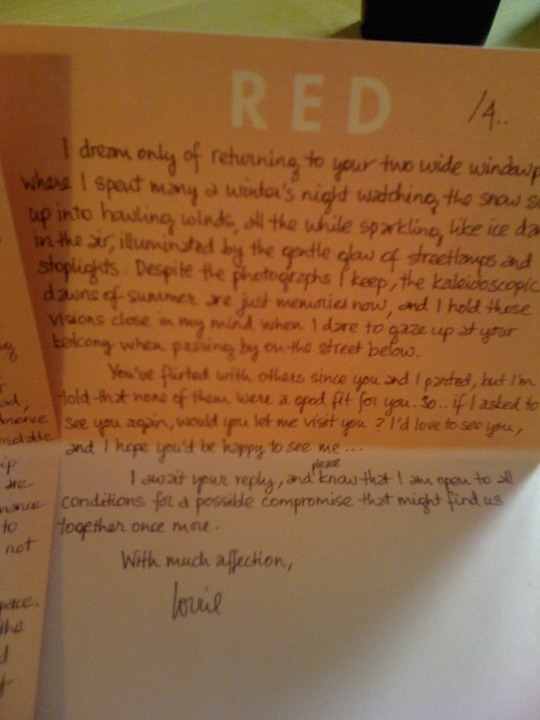 RED
/4..
I dream only of returning to your two wide windowp
where I spent many a winter's night watching the snow s
up into howling winds, all the while sparkling, like ice da
in the air, illuminated by the gentle glow of streetlamps and
stoplights. Despite the photographs I keep, the kaleidoscopic
dawns of summer are just memories now, and I hold those
visions close in my mind when I dare to gaze up at your
balcony when passing by on the street below.
You've flirted with others since you and I parted, but I'm
told that none of them were a good fit for you. So.. if I asked to
see you again, would you let me visit you? I'd love to see you,
and I hope you'd be happy to see me...
I await your reply, and please know that I am open to all
conditions for a possible compromise that might find us
together once more.
With much affection,
are
to
not
the